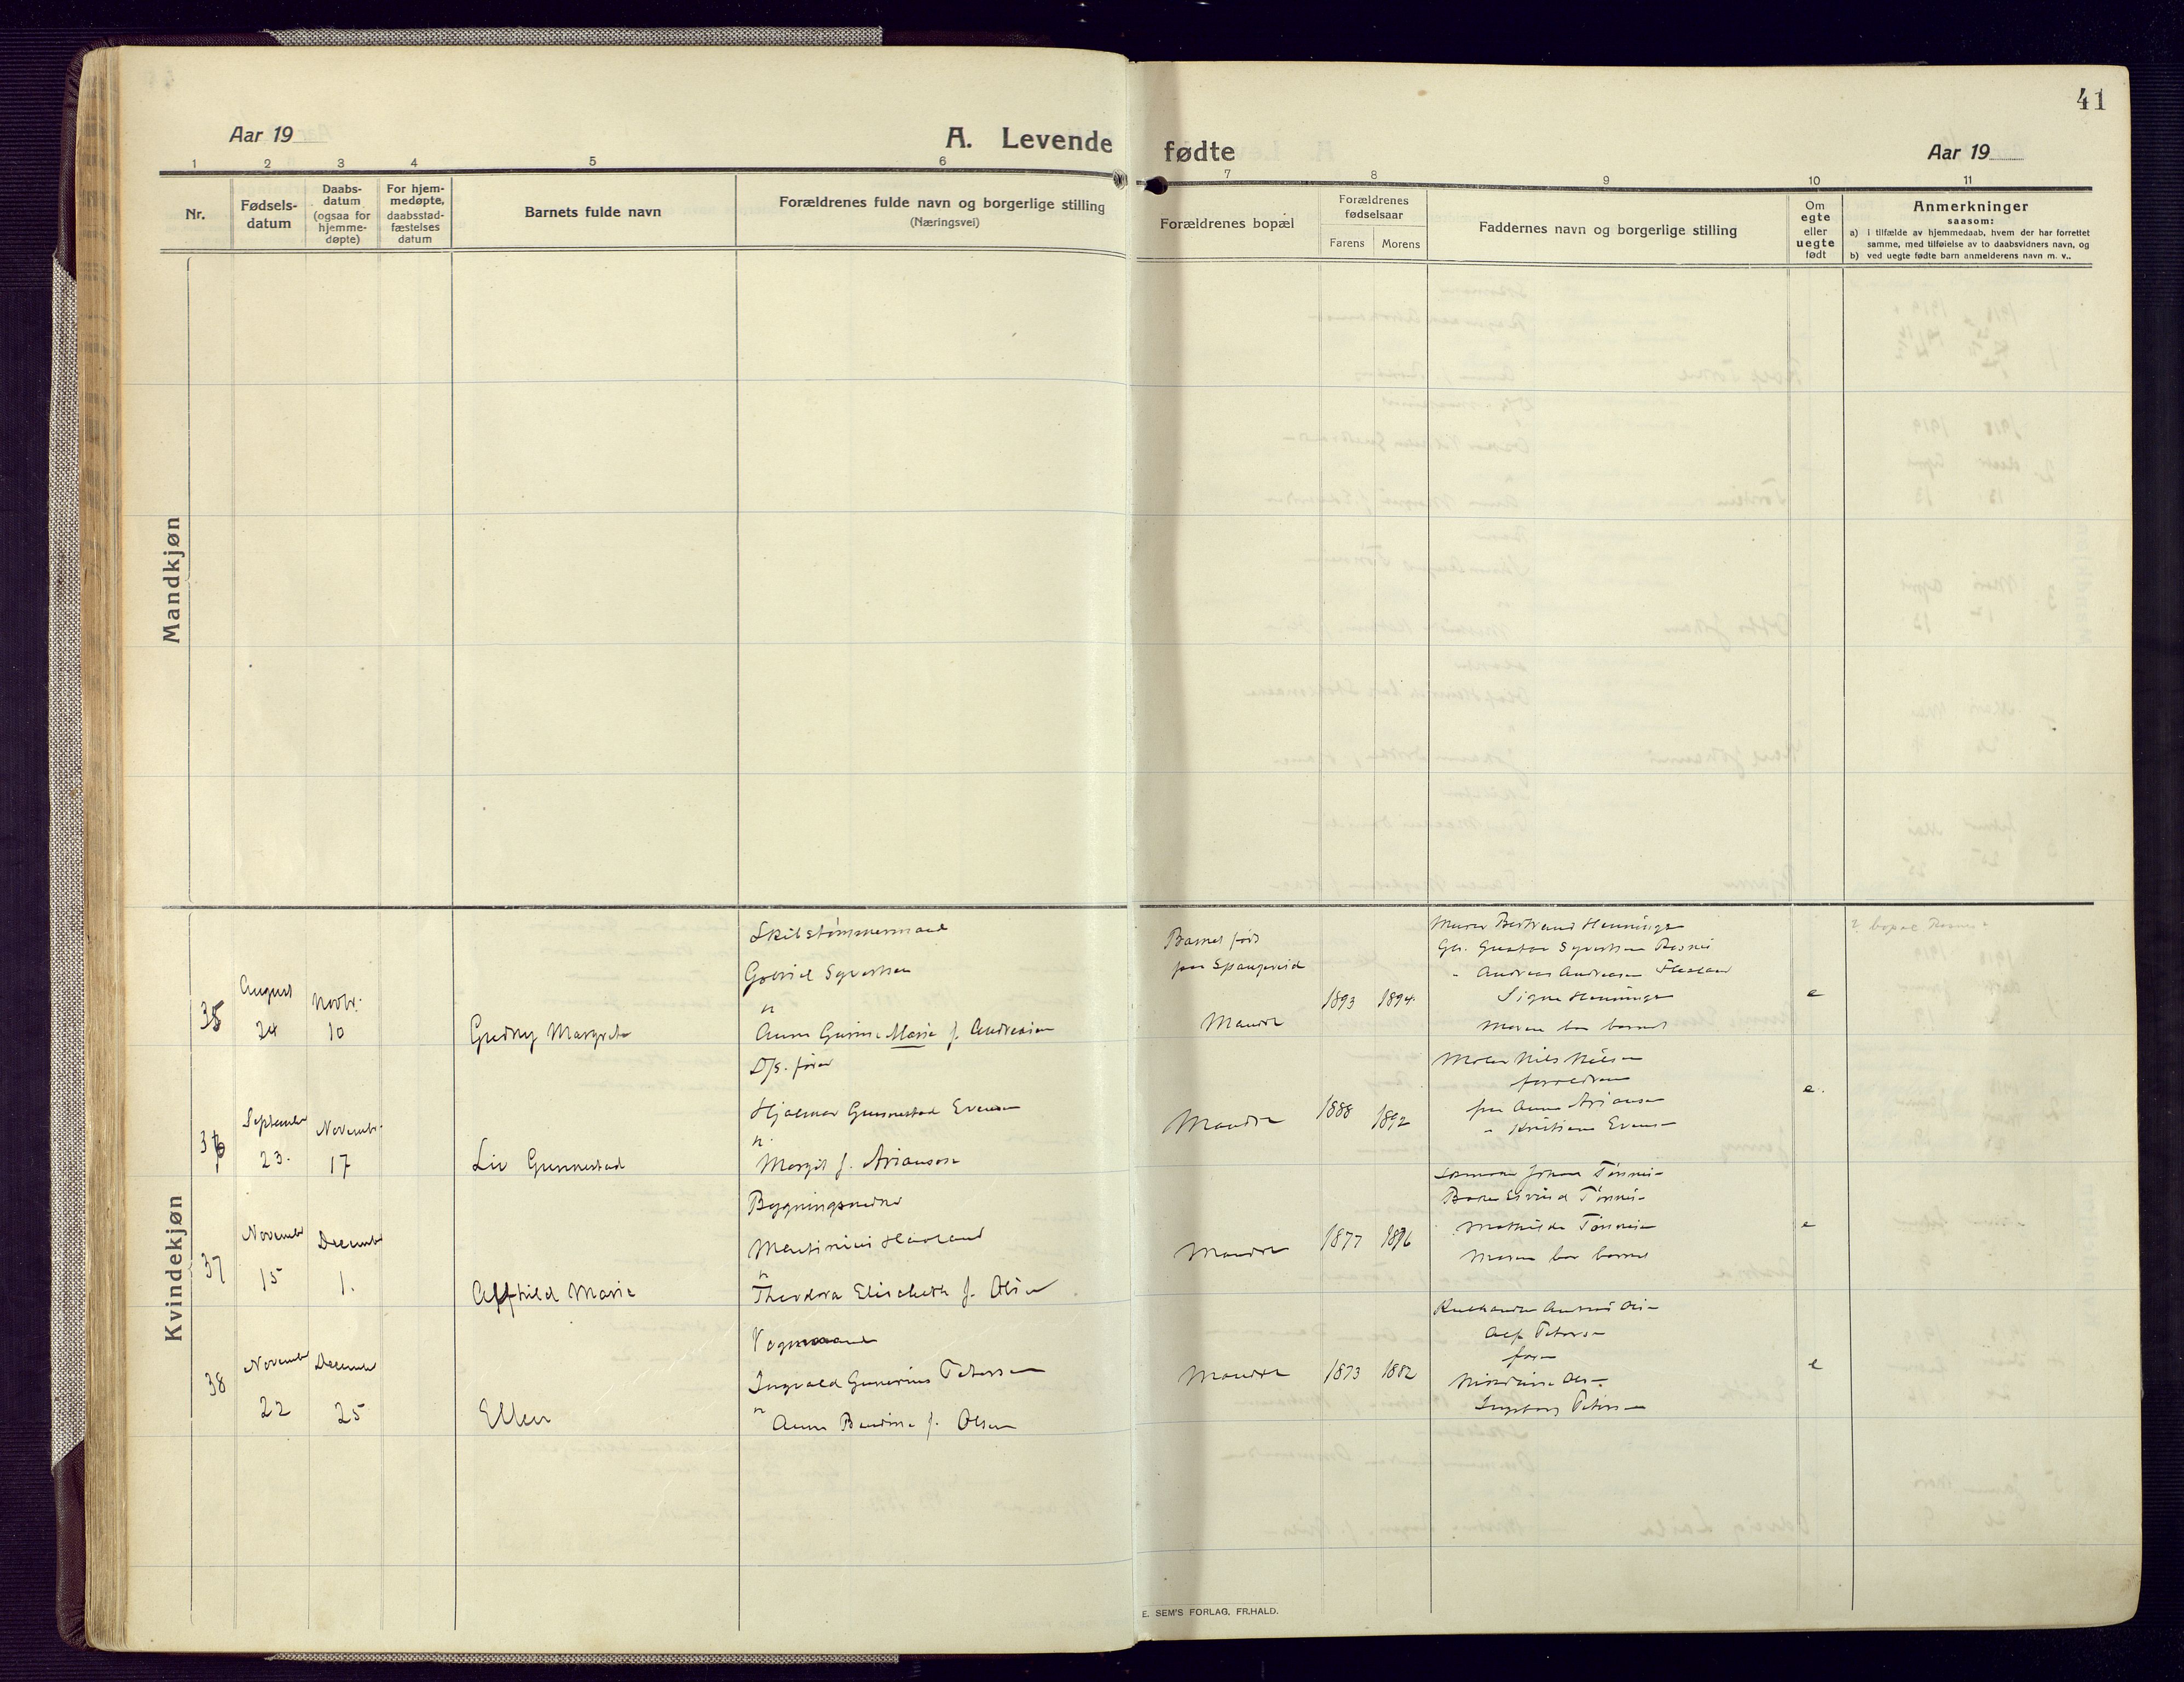 41
Aar 19
A. Levende fødte
Aar 19
1 2 3 4 5 6 7 8 9 10 11
Nr.
Fødsels-
datum
Daabs-
datum
(ogsaa for
hjemme-
døpte)
For hjem-
medøpte,
daabsstad-
fæstelses
datum
Barnets fulde navn
Forældrenes fulde navn og borgerlige stilling
(Næringsvei)
Forældrenes bopæl
Forældrenes
fødselsaar
Farens Morens
Faddernes navn og borgerlige stilling
Om
egte
eller
uegte
født
Anmerkninger
saasom:
a) i tilfælde av hjemmedaab, hvem der har forrettet
samme, med tilføielse av to daabsvidners navn, og
b) ved uegte fødte barn anmelderens navn m. v..
Mandkjøn
Kvindekjøn
35
August
24
Novbr.
10
Gudny Margrete
Skibstømmermand
Gabriel Syvertsen
"
Anna Gurine Marie f. Andreassen
Barnet født
paa Spangereid
Mandal
1893 1894
Murer Bertrand Henningsen
Gbr. Gustav Syvertsen
" Andreas Andreassen
Signe Henningsen
Moren bar barnet
e
36
September
23.
November
17
Liv Gunnestad
D/s. fører
Hjalmar Gunnestad Evensen
"
Margit f. Ariansen
Mandal
1888 1892
Maler Nils Nilsen
forældrene
fru Anna Ariansen
" Kristiane Evensen
e.
37
November
15
December
1.
Alfhild Marie
Bygningssnedker
Martinius Haaland
"
Theodora Elisabeth f. Olsen
Mandal
1877 1896
Johan Tønnesen
Eivind Tønnesen
Mathilde Tønnesen
Moren bar barnet
e
38
November
22
December
25
Ellen
Vognmand
Ingvald Gunerius Petersen
"
Anna Bendine f. Olsen
Mandal
1873 1882
Olsen
Alf Petersen
faren
Olsen
Ingeborg Petersen
e
E. SEM'S FORLAG, FR.HALD.